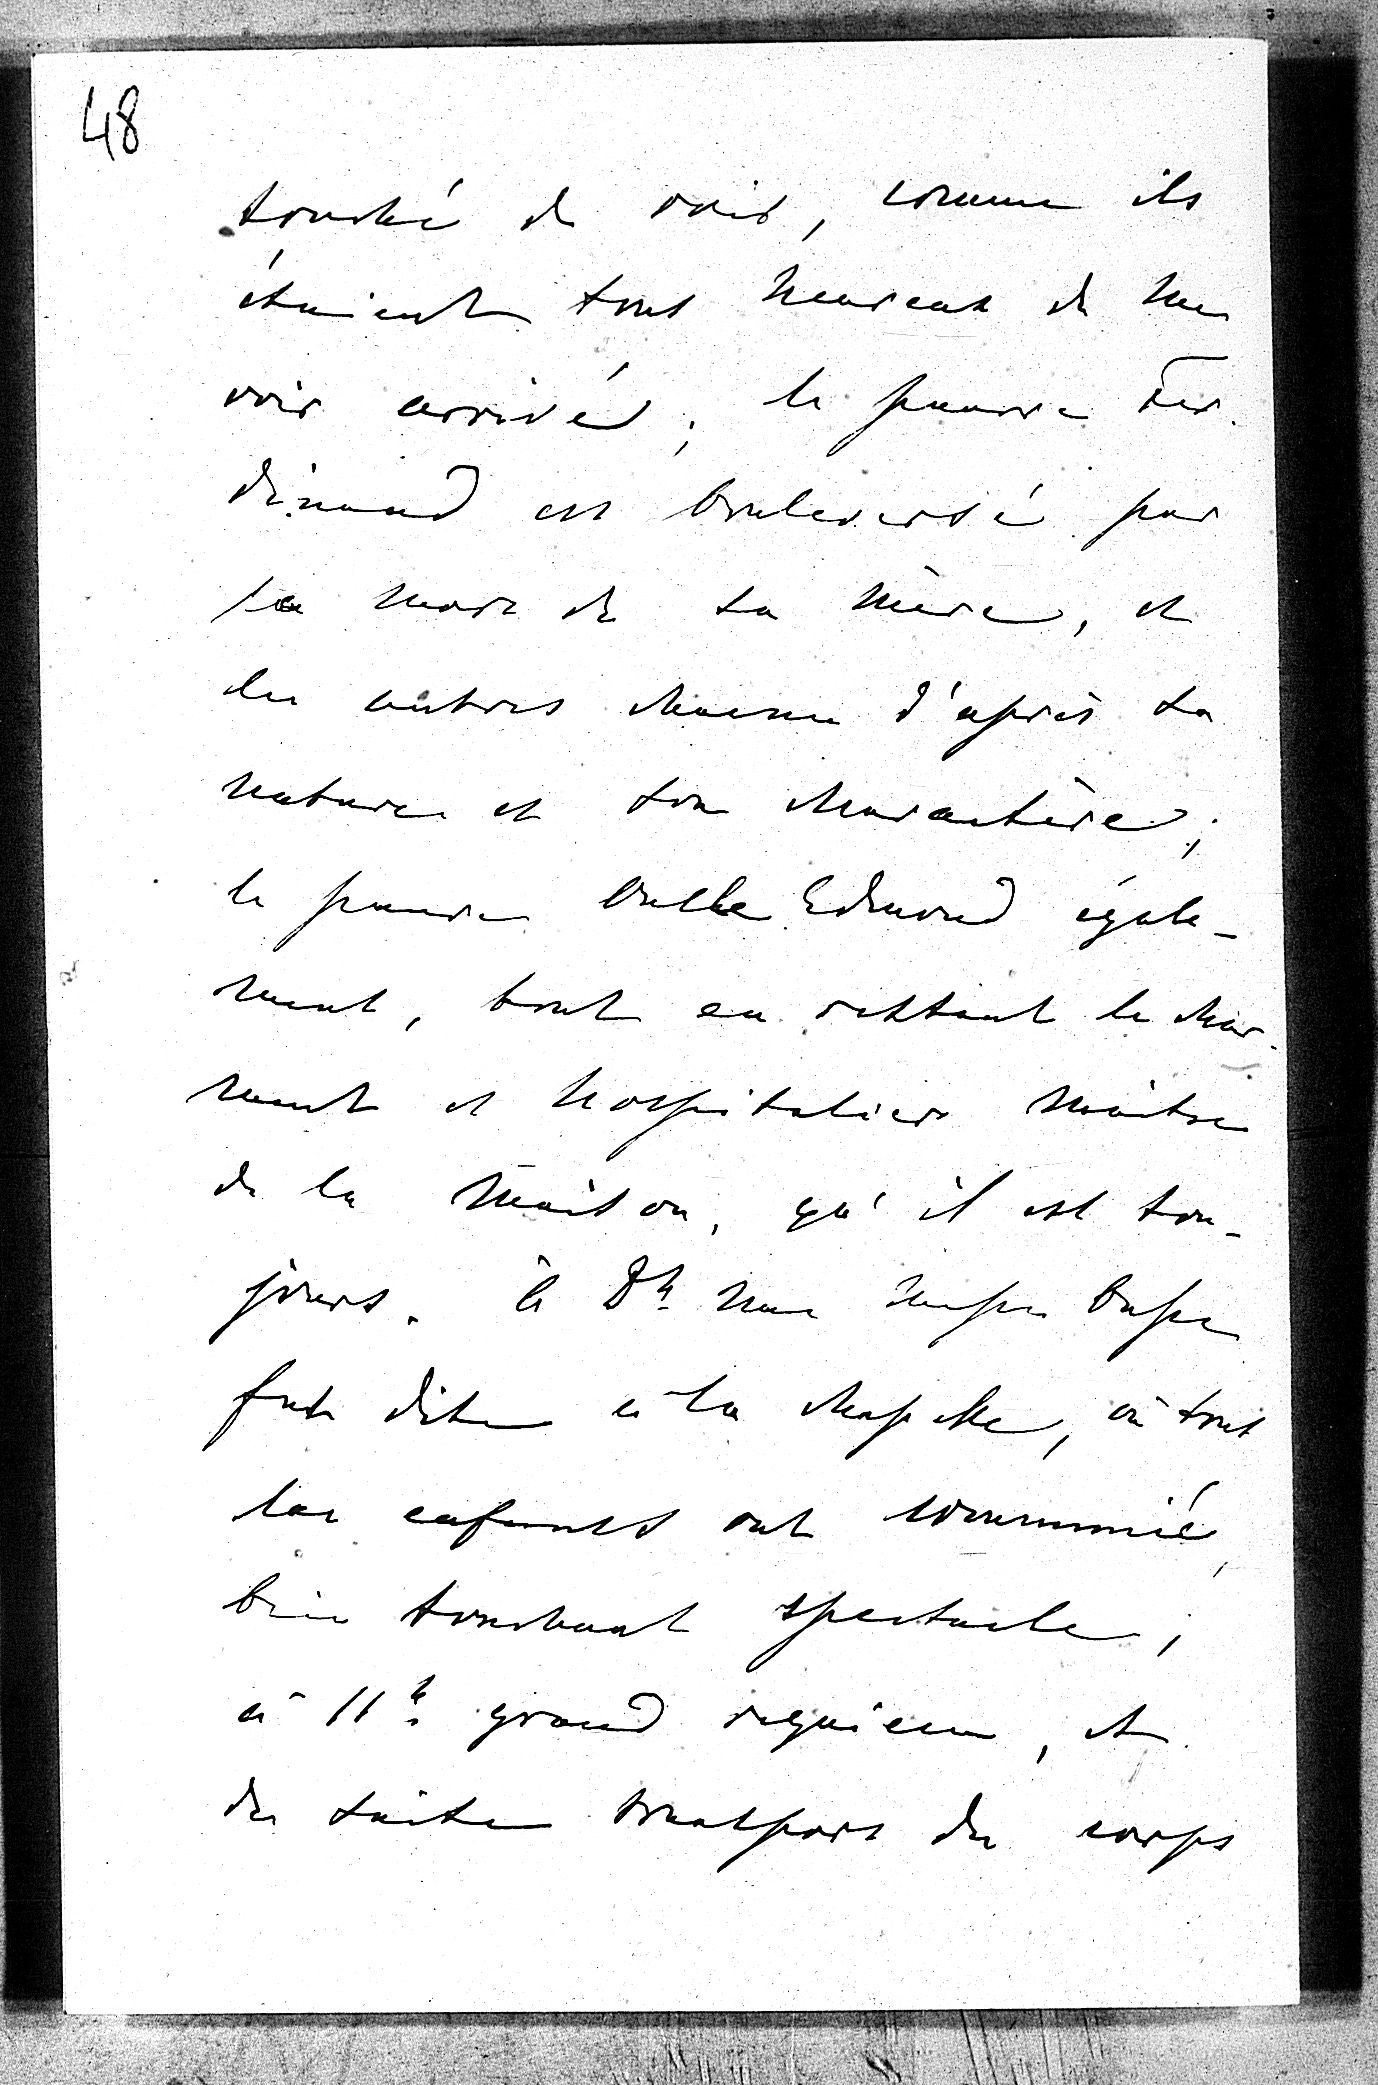 48
touché de voir, comme ils
étaient tous heureux de me
voir arrivé; le pauvre Fer-
dinand est bouleversé par
la mort de sa mère, et
les autres chacun d'après sa
nature et son charactère;
le pauvre Edmond égale-
ment, tout en restant le char-
mant et hospitalier maître
de la maison, qu'il est tou-
jours. à 8h une messe basse
fut dite à la chapelle, où tous
les enfants ont communié,
bien touchant spectacle;
à 11h grand requiem, et
de suite transport du corps